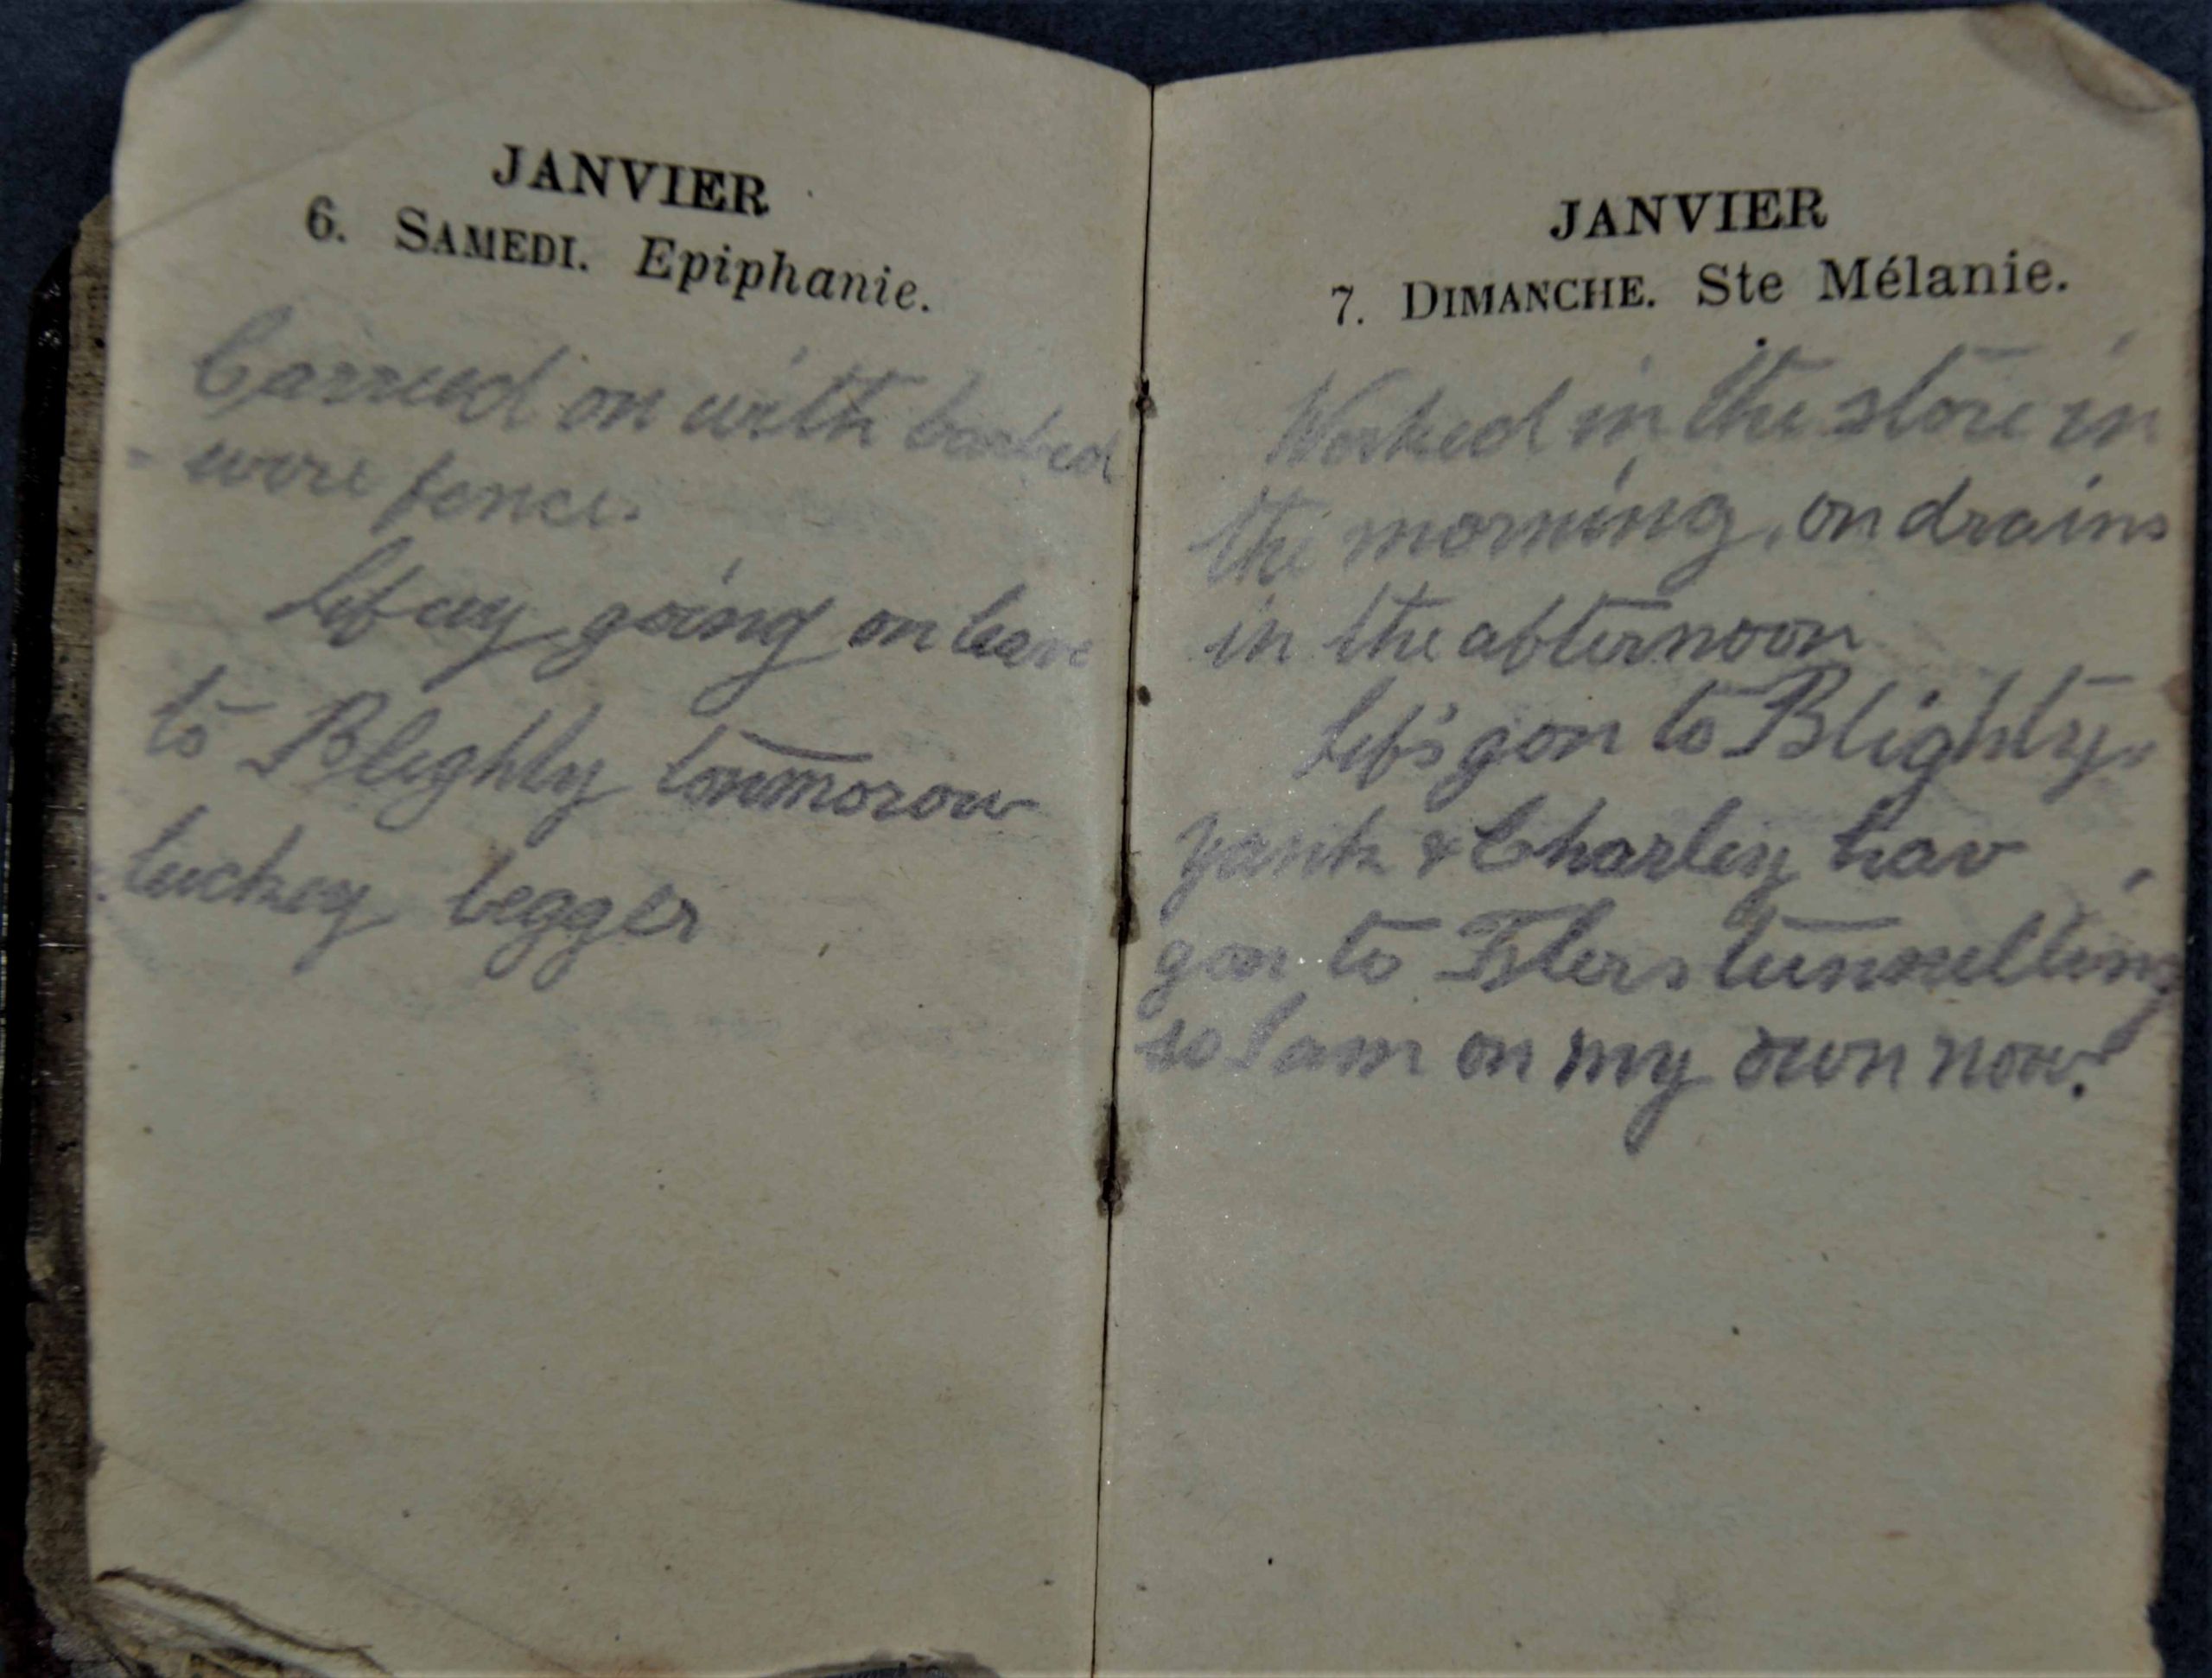 JANVIER
6. SAMEDI. Epiphanie.
Carried on with barbed
wire fence.
going on leave
to Blighty tommorow
luckey begger
JANVIER
7. DIMANCHE. Ste Mélanie.
Worked in the store in
the morning, on drains
in the afternoon
gon to Blighty.
Yank & Charley hav
gon to Flers tunnelling
so I am on my own now.